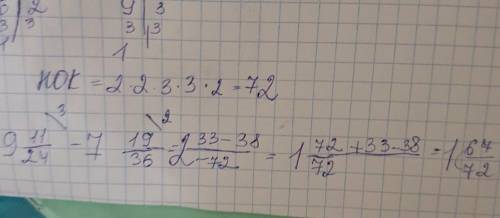 6 | 2 9 | 3
3 | 3 3 | 3
1 1
НОК = 2·2·3·3·2=72
9 11/24 - 7 19/36 = 2 33-38/72 = 1 72+33-38/72 = 1 67/72
3 2